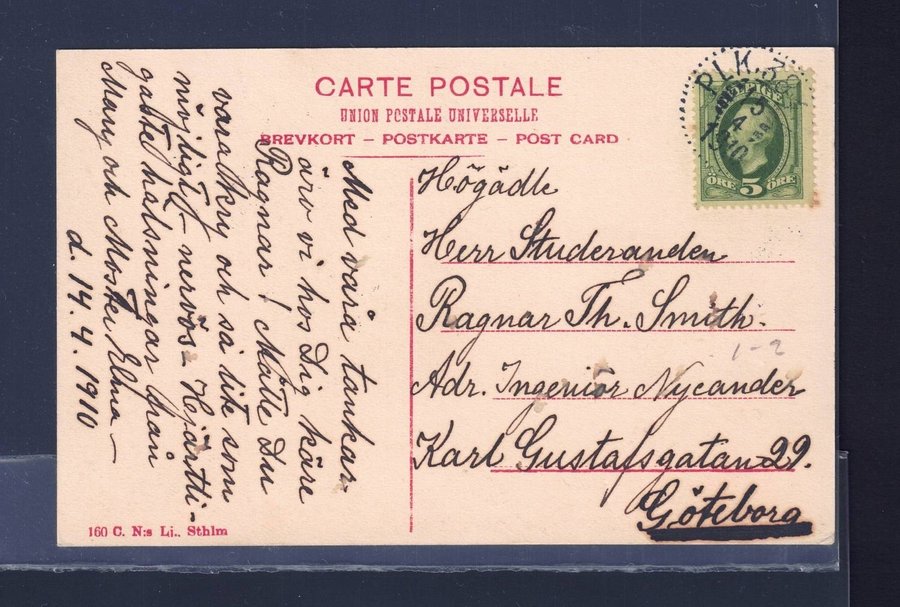 CARTE POSTALE
UNION POSTALE UNIVERSELLE
BREVKORT – POSTKARTE – POST CARD
Med våra tankar
äro vi hos Dig käre
Ragnar! Måtte Du
vara kry och så lite som
möjligt nervös – Hjärtli-
gaste hälsningar från
Meny och Moster Elma –
d. 14.4.1910
Högädle
Herr Studeranden
Ragnar Th. Smith.
Adr. Ingeniör Nycander
Karl Gustafsgatan 29.
Göteborg
1-2
PLK.
4
1910
5
ÖRE
ÖRE
160 C. N:s Lj., Sthlm